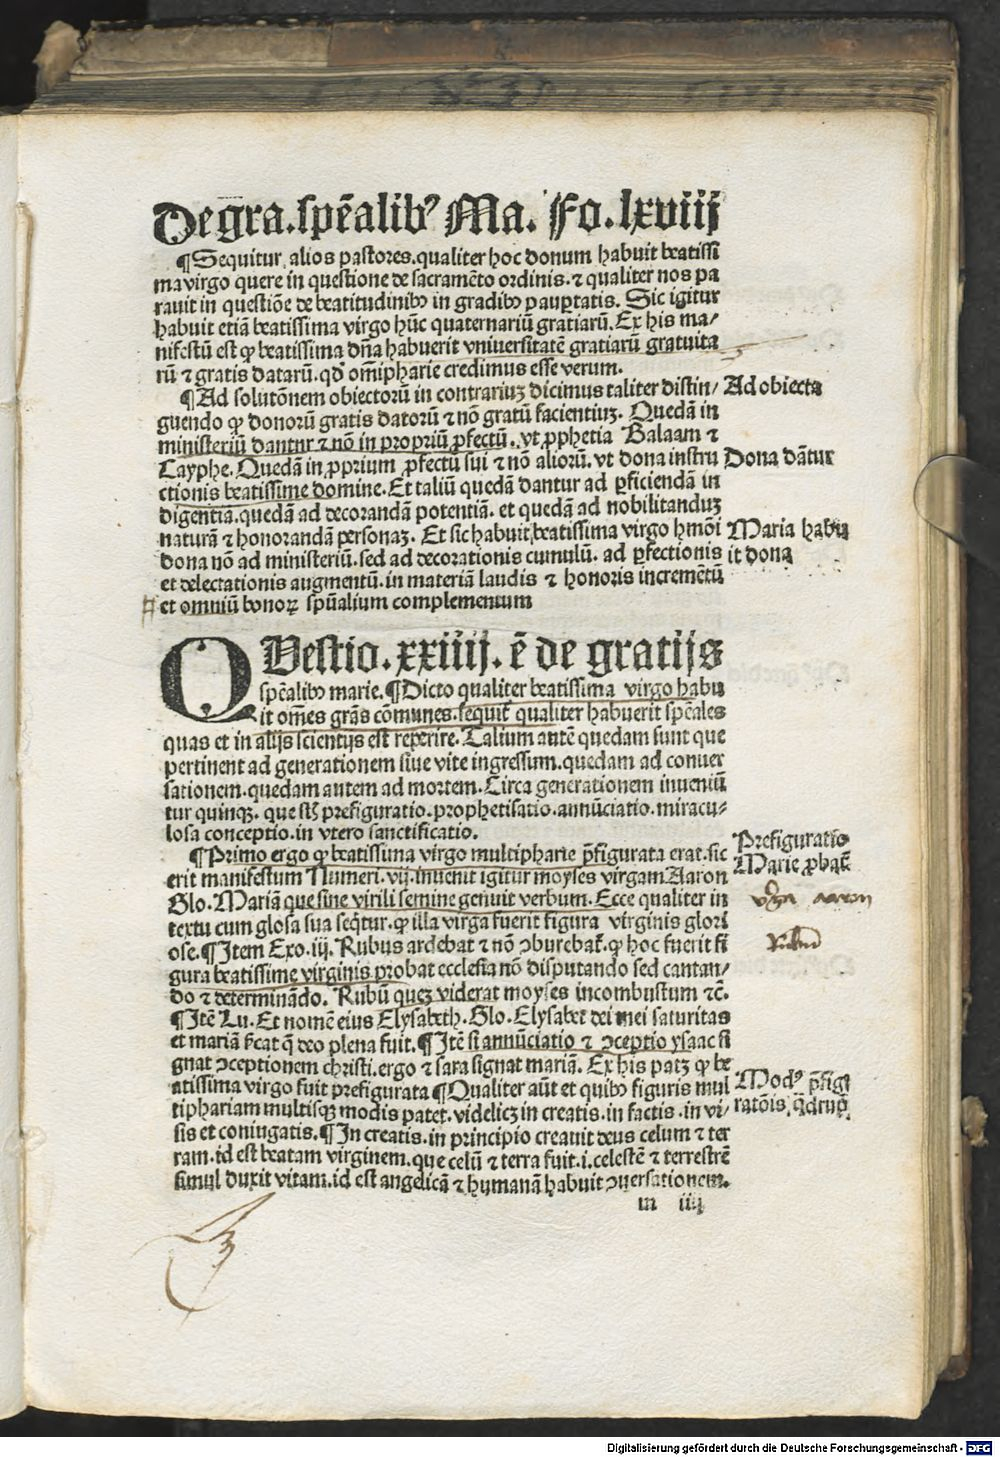 De gr̄a.sp̄ealibꝰ Ma. Fo. lxviij
¶Sequitur alios pastores.qualiter hoc donum habuit beatissi
ma virgo quere in questione de sacramēto ordinis.⁊ qualiter nos pa
rauit in questiōe de beatitudinibꝫ in gradibꝫ paup̱tatis. Sic igitur
habuit etiā beatissima virgo hūc quaternariū gratiarū. Ex his ma/
nifestū est ꝙ beatissima dn̄a habuerit vniuersitatē gratiarū gratuita
rū ⁊ gratis datarū.qd̄ om̄ipharie credimus esse verum.
¶Ad solutōnem obiectorū in contrariuꝫ dicimus taliter distin/
guendo ꝙ donorū gratis datorū ⁊ nō gratū facientiuꝫ. Quedā in
ministeriū dantur ⁊ nō in propriū ꝓfectū.vt ꝓphetia Balaam ⁊
Cayphe.Quedā in ꝓprium ꝓfectū sui ⁊ nō aliorū.vt dona instru
ctionis beatissime domine.Et taliū quedā dantur ad ꝑficiendā in
digentiā.quedā ad decorandā potentiā.et quedā ad nobilitanduꝫ
naturā ⁊ honorandā personaꝫ. Et sic habuit beatissima virgo hmōi
dona nō ad ministeriū.sed ad decorationis cumulū.ad ꝑfectionis
et delectationis augmentū.in materiā laudis ⁊ honoris incremētū
et omniū bonoꝝ spūalium complementum
Ad obiecta
Dona dātur
Maria habu
it dona
QVestio.xxiiij.ē de gratijs
sp̄ealibꝫ marie.¶Dicto qualiter beatissima virgo habu
it om̄es grās cōmunes.sequit̄ qualiter habuerit sp̄eales
quas et in alijs scientijs est reperire.Talium autē quedam sunt que
pertinent ad generationem siue vite ingressum.quedam ad conuer
sationem.quedam autem ad mortem.Circa generationem inueniū
tur quinqꝫ.que st̄ prefiguratio.prophetisatio.annūciatio.miracu-
losa conceptio.in vtero sanctificatio.
¶Primo ergo ꝙ beatissima virgo multipharie p̄figurata erat.sic
erit manifestum Numeri.vij.inuenit igitur moyses virgam Aaron
Glo.Mariā que sine virili semine genuit verbum.Ecce qualiter in
textu cum glosa sua seq̄tur.ꝙ illa virga fuerit figura virginis glori
ose.¶Item Exo.iij. Rubus ardebat ⁊ nō ꝯburebat̄.ꝙ hoc fuerit fi
gura beatissime virginis probat ecclesia nō disputando sed cantan/
do ⁊ determinādo. Rubū queꝫ viderat moyses incombustum ⁊c̄.
¶Itē Lu.Et nomē eius Elysabeth.Glo.Elysabet dei mei saturitas
et mariā s̄icat q̄ deo plena fuit.¶Itē si annūciatio ⁊ ꝯceptio ysaac si
gnat ꝯceptionem christi.ergo ⁊ sara signat mariā. Ex his patꝫ ꝙ be
atissima virgo fuit prefigurata ¶Qualiter aūt et quibꝫ figuris mul
tiphariam multisqꝫ modis patet.videlicꝫ in creatis.in factis.in vi-
sis et coniugatis.¶In creatis.in principio creauit deus celum ⁊ ter
ram.id est beatam virginem.que celū ⁊ terra fuit.i.celestē ⁊ terrestrē
simul duxit vitam.id est angelicā ⁊ humanā habuit ꝯuersationem.
Prefiguratio
Marie ꝓbat̄
virga aaron
Rubus
Modꝰ p̄figu
ratōis q̄drup̄
m iiij